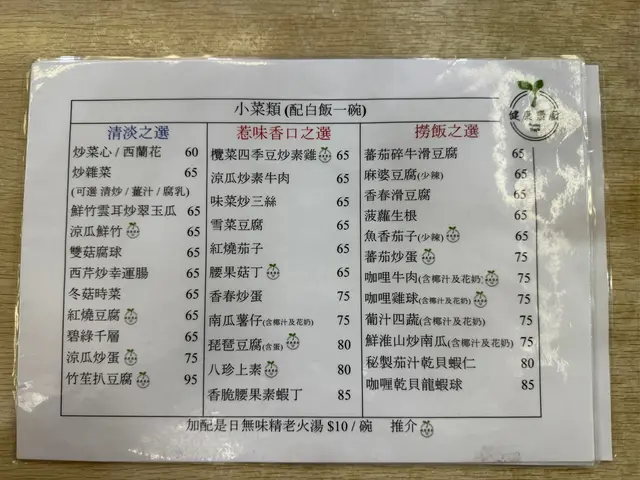 健康蔬廚
小菜類 (配白飯一碗)
清淡之選
炒菜心 / 西蘭花 60
炒雜菜 65
(可選 清炒 / 薑汁 / 腐乳)
鮮竹雲耳炒翠玉瓜 65
涼瓜鮮竹 65
雙菇腐球 65
西芹炒幸運腸 65
冬菇時菜 65
紅燒豆腐 65
碧綠千層 65
涼瓜炒蛋 75
竹笙扒豆腐 95
惹味香口之選
欖菜四季豆炒素雞 65
涼瓜炒素牛肉 65
味菜炒三絲 65
雪菜豆腐 65
紅燒茄子 65
腰果菇丁 65
香春炒蛋 75
南瓜薯仔(含椰汁及花奶) 75
琵琶豆腐(含蛋) 80
八珍上素 80
香脆腰果素蝦丁 85
撈飯之選
蕃茄碎牛滑豆腐 65
麻婆豆腐(少辣) 65
香春滑豆腐 65
菠蘿生根 65
魚香茄子(少辣) 65
蕃茄炒蛋 75
咖哩牛肉(含椰汁及花奶) 75
咖哩雞球(含椰汁及花奶) 75
葡汁四蔬(含椰汁及花奶) 75
鮮淮山炒南瓜(含椰汁及花奶) 75
秘製茄汁乾貝蝦仁 80
咖喱乾貝龍蝦球 85
加配是日無味精老火湯 $10 / 碗 推介